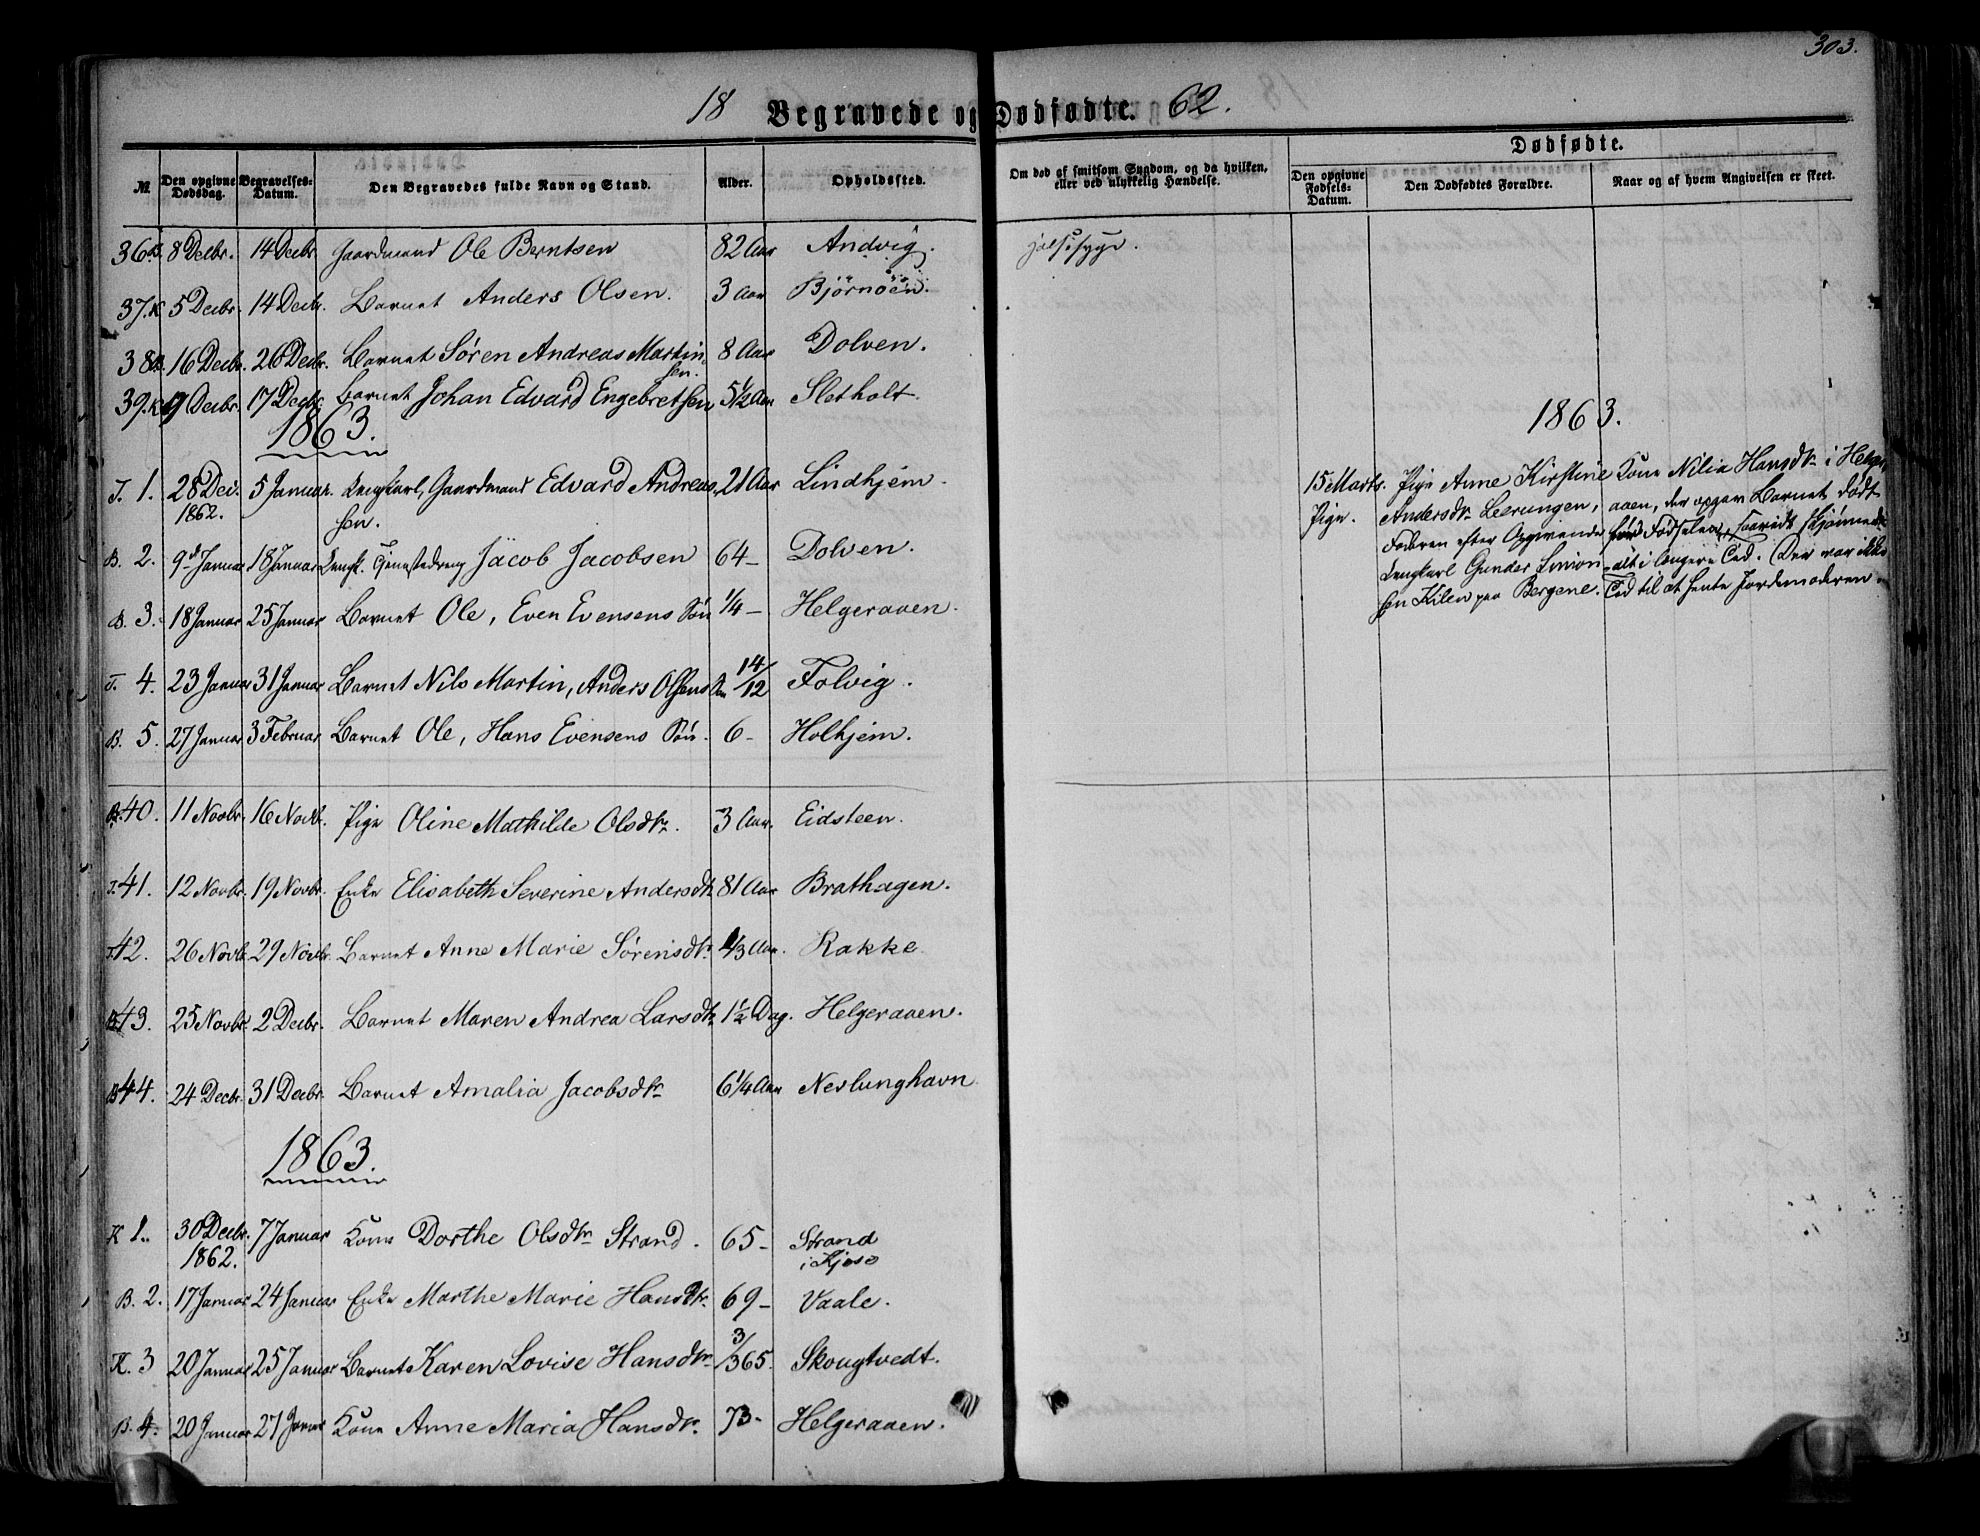 303.
18 Begravede og Dødfødte. 62.
Dødfødte.
№ Den opgivne Dødsdag. Begravelses-Datum. Den Begravedes fulde Navn og Stand. Alder. Opholdssted. Om død af smitsom Sygdom, og da hvilken, eller ved ulykkelig Hændelse. Den opgivne Fødsels-Datum. Den Dødfødtes Forældre. Naar og af hvem Angivelsen er skeet.
36 B. 8 Decbr. 14 Decbr. Gaardmand Ole Berntsen 82 Aar Andvig.
37. K 5 Decbr. 14 Decbr. Barnet Anders Olsen. 3 Aar Bjørnøen.
38 B. 16 Decbr. 26 Decbr. Barnet Søren Andreas Martin 8 Aar Dolven.
sen.
39. K 9 Decbr. 17 Decbr. Barnet Johan Edvard Engebretsen 5 1/2 Aar Sletholt.
1863.
T. 1. 28 Dec. 5 Januar. Ungkarl, Gaardmand Edvard Andreas 21 Aar Lindhjem.
1862. sen.
B. 2. 9de Januar 18 Januar Ungk. Tjenestedreng Jacob Jacobsen 64 – Dolven.
B. 3. 18 Januar 25 Januar Barnet Ole, Even Evensens Søn 1/4 – Helgeraaen.
T. 4. 23 Januar 31 Januar Barnet Nils Martin, Anders Olsens Søn 14/12 Folvig.
B. 5. 27 Januar 3 Februar Barnet Ole, Hans Evensens Søn. 6 – Holhjem.
B. 40. 11 Novbr. 16 Novbr. Pige Oline Mathilde Olsdtr. 3 Aar. Eidsteen.
T. 41. 12 Novbr. 19 Novbr. Enke Elisabeth Severine Andersdtr 81 Aar Brathagen.
T. 42. 26 Novbr. 29 Novbr. Barnet Anne Marie Sørensdtr. 1/3 Aar. Rakke
B. 43. 25 Novbr. 2 Decbr. Barnet Maren Andrea Larsdtr 1 1/2 Dag. Helgeraaen.
B. 44. 24 Decbr. 31 Decbr. Barnet Amalia Jacobsdtr 6 1/4 Aar Nevlunghavn
1863.
K 1. 30 Decbr. 7 Januar Kone Dorthe Olsdtr Strand. 65 – Strand
1862. i Kjose
B. 2. 17 Januar 24 Januar Enke Marthe Marie Hansdtr. 69 – Vaale.
K. 3 20 Januar 25 Januar Barnet Karen Lovise Hansdtr. 3/365. Skougtvedt.
B. 4. 20 Januar 27 Januar Kone Anne Maria Hansdtr. 73 – Helgeraaen.
1863.
15 Marts. Pige Anne Kirstine Kone Nilia Hansdtr i Helger
Pige. Andersdtr Leerungen, aaen, der opgav Barnet dødt
Faderen efter Opgivende før Fødselen,
Ungkarl Gunder Simon alt i længere Tid. Der var ikke
sen Kilen paa Bergene. Tid til at hente Jordemoderen.